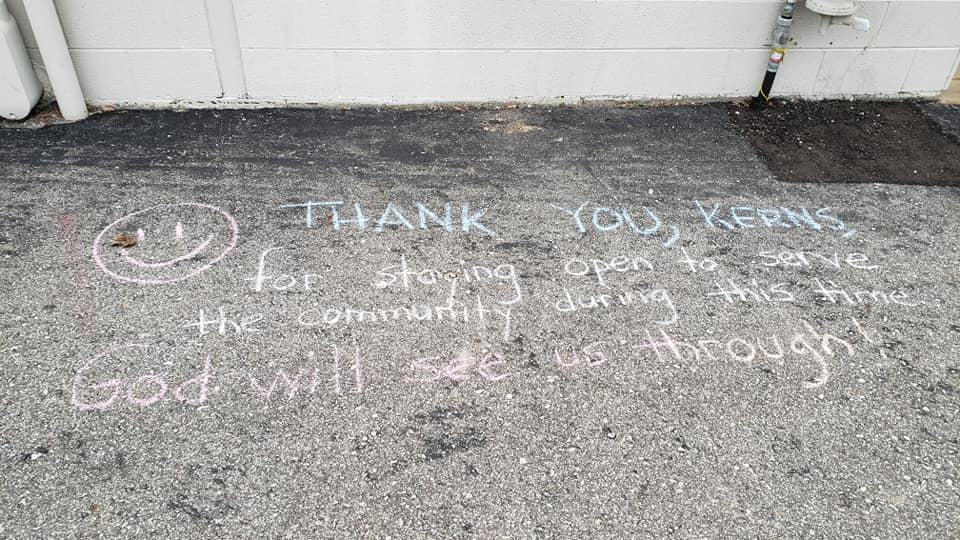 THANK YOU, KERNS,
for staying open to serve
the community during this time.
God will see us through!